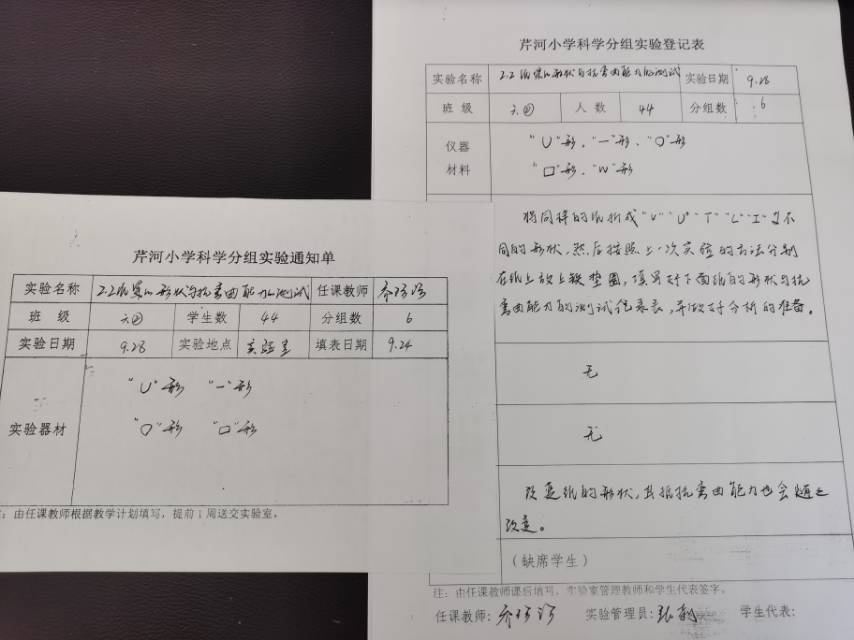 芹河小学科学分组实验登记表
实验名称 2.2纸梁的形状与抗弯曲能力的测试 实验日期 9.28
班 级 六④ 人 数 44 分组数 6
仪器 "U"形、"一"形、"O"形
材料 "口"形、"W"形
将同样的纸折成"V""U""T""L""工"等不
同的形状,然后按照上一次实验的方法分别
在纸上放上铁垫圈,填写好下面纸的形状与抗
弯曲能力的测试记录表,并做好分析的准备。
无
无
改变纸的形状,其抵抗弯曲能力也会随之
改变。
(缺席学生)
注:由任课教师课后填写,实验室管理教师和学生代表签字。
任课教师: 实验管理员: 学生代表:
芹河小学科学分组实验通知单
实验名称 2.2纸梁的形状与抗弯曲能力的测试 任课教师
班 级 六④ 学生数 44 分组数 6
实验日期 9.28 实验地点 实验室 填表日期 9.24
"U"形 "一"形
实验器材 "O"形 "口"形
:由任课教师根据教学计划填写,提前1周送交实验室。